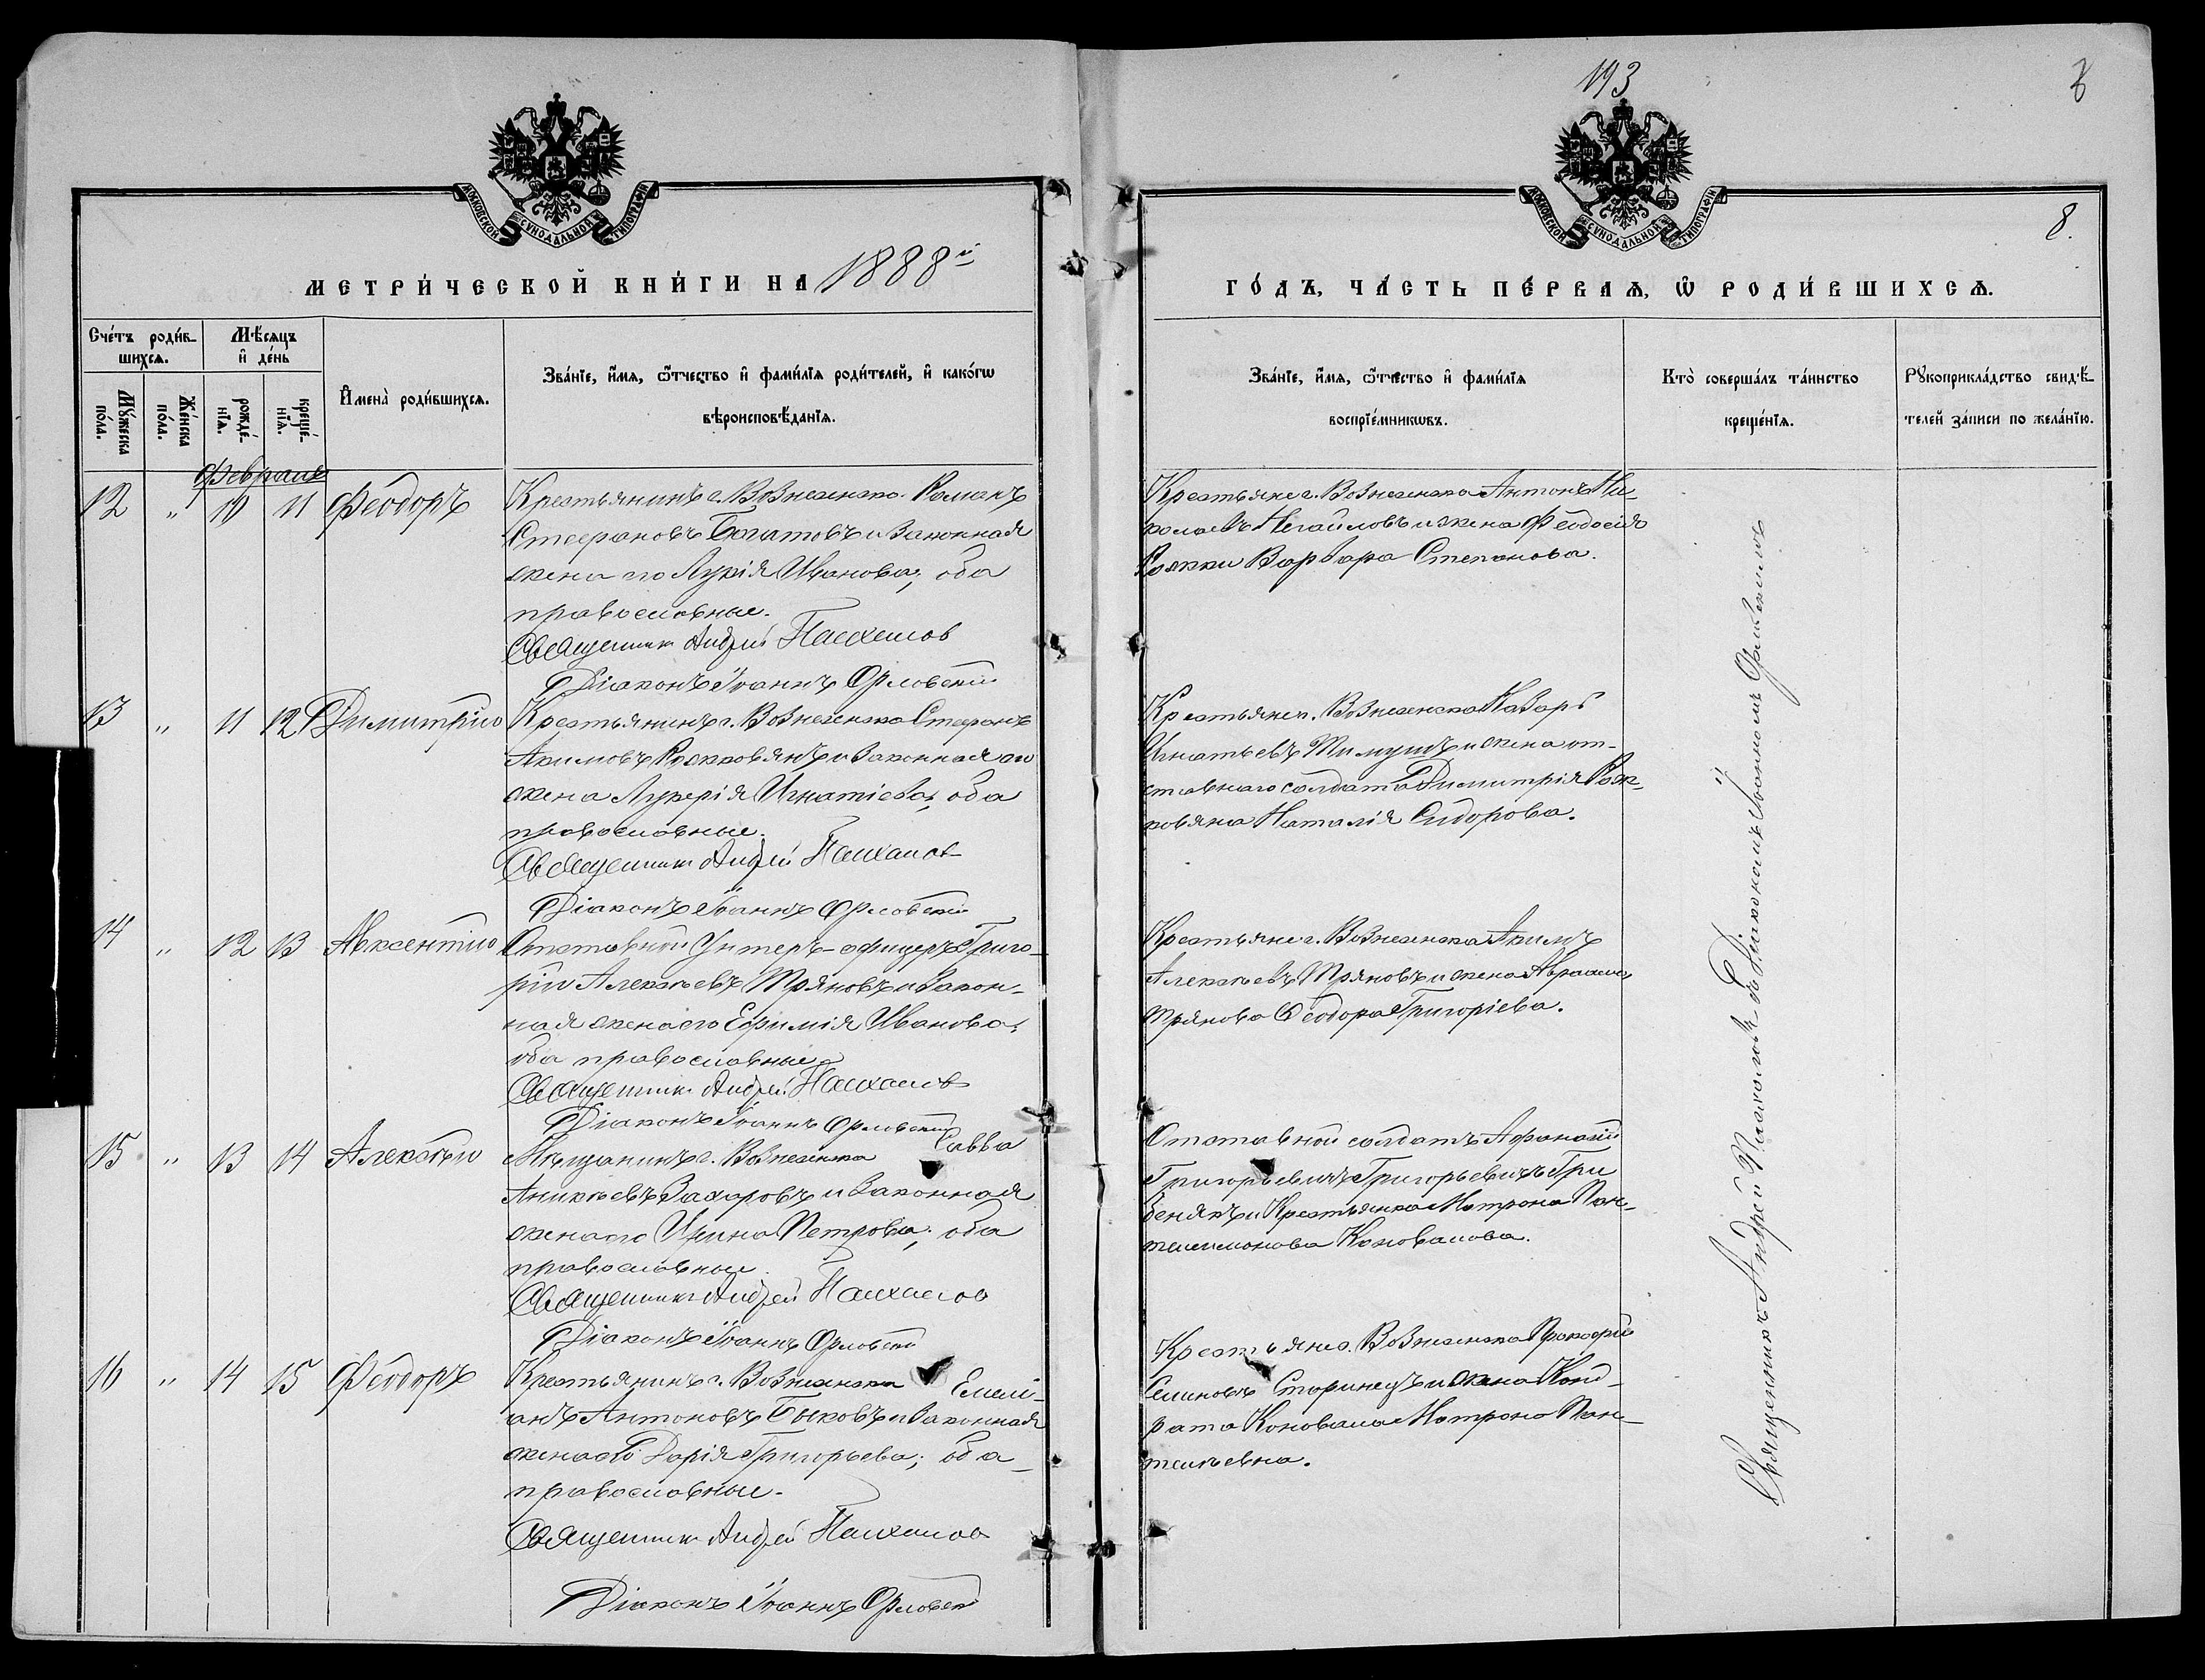 193
8
8.
МОСКОВСКОЙ СѴНОДАЛЬНОЙ ТИПОГРАФІИ
МОСКОВСКОЙ СѴНОДАЛЬНОЙ ТИПОГРАФІИ
МЕТРИ́ЧЕСКОЙ КНИ́ГИ НА 1888й
ГО́ДЪ, ЧА́СТЬ ПЕ́РВАѦ, Ѡ҆ РОДИ́ВШИХСѦ.
Сче́тъ роди́в-
шихсѧ.
Мꙋ́жеска по́ла.
Же́нска по́ла.
Мѣ́сѧцъ
и҆ де́нь
рожде́-
нїѧ.
креще́-
нїѧ.
И҆мена̀ роди́вшихсѧ.
Зва́нїе, и҆́мѧ, ѻ҆́тчество и҆ фами́лїѧ роди́телей, и҆ како́гѡ
вѣроисповѣ́данїѧ.
Зва́нїе, и҆́мѧ, ѻ҆́тчество и҆ фами́лїѧ
воспрїе́мникѡвъ.
Кто̀ соверша́лъ та́инство
креще́нїѧ.
Рꙋкоприкла́дство свидѣ́-
телей за́писи по жела́нїю.
Февраль
12 " 10 11 Ѳеодоръ
Крестьянинъ г. Вознесенска Романъ
Стефановъ Богатовъ и законная
жена его Лукія Иванова; оба
православные.
Священник Андрей Пасхалов
Діаконъ Іоаннъ Орловскій
Крестьяне г. Вознесенска Антонъ Ни-
колаевъ и жена Ѳеодосія
Варвара Степанова.
13 " 11 12 Димитрій
Крестьянинъ г. Вознесенска Стефанъ
Акимовъ и законная его
жена Лукерія Игнатіева; оба
православные.
Священник Андрей Пасхалов
Діаконъ Іоаннъ Орловскій
Крестьяне г. Вознесенска Назаръ
Игнатьевъ и жена от-
ставнаго солдата Димитрія
Наталія Сидорова.
14 " 12 13 Авксентій
Отставной Унтеръ-офицеръ Григо-
рій Алексѣевъ Пряновъ и закон-
ная жена его Ефимія Иванова;
оба православные
Священник Андрей Пасхалов
Діаконъ Іоаннъ Орловскій
Крестьяне г. Вознесенска Акимъ
Алексѣевъ Пряновъ и жена Авраама
Прянова Ѳеодора Григоріева.
15 " 13 14 Алексѣй
Мѣщанинъ г. Вознесенска Савва
Аникѣевъ Захаровъ и законная
жена его Ирина Петрова; оба
православные.
Священник Андрей Пасхалов
Діаконъ Іоаннъ Орловскій
Отставной солдатъ Афанасій
Григорьевичъ Григорьевичъ Гри
и Крестьянка Матрона Пан-
телеимонова Коновалова.
16 " 14 15 Ѳеодоръ
Крестьянинъ г. Вознесенска Емелі-
анъ Антоновъ Быковъ и законная
жена его Дарія Григорьева; оба
православные.
Священник Андрей Пасхалов
Діаконъ Іоаннъ Орловскій
Крестьяне г. Вознесенска Прокофій
Семеновъ Старинецъ и жена Конд-
рата Коновала Матрона Пан-
телѣевна.
Священникъ Андрей Пасхаловъ съ Діакономъ Іоанномъ Орловскимъ